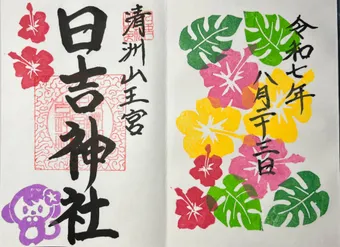 令和七年
八月二十三日
清洲山王宮
日吉神社